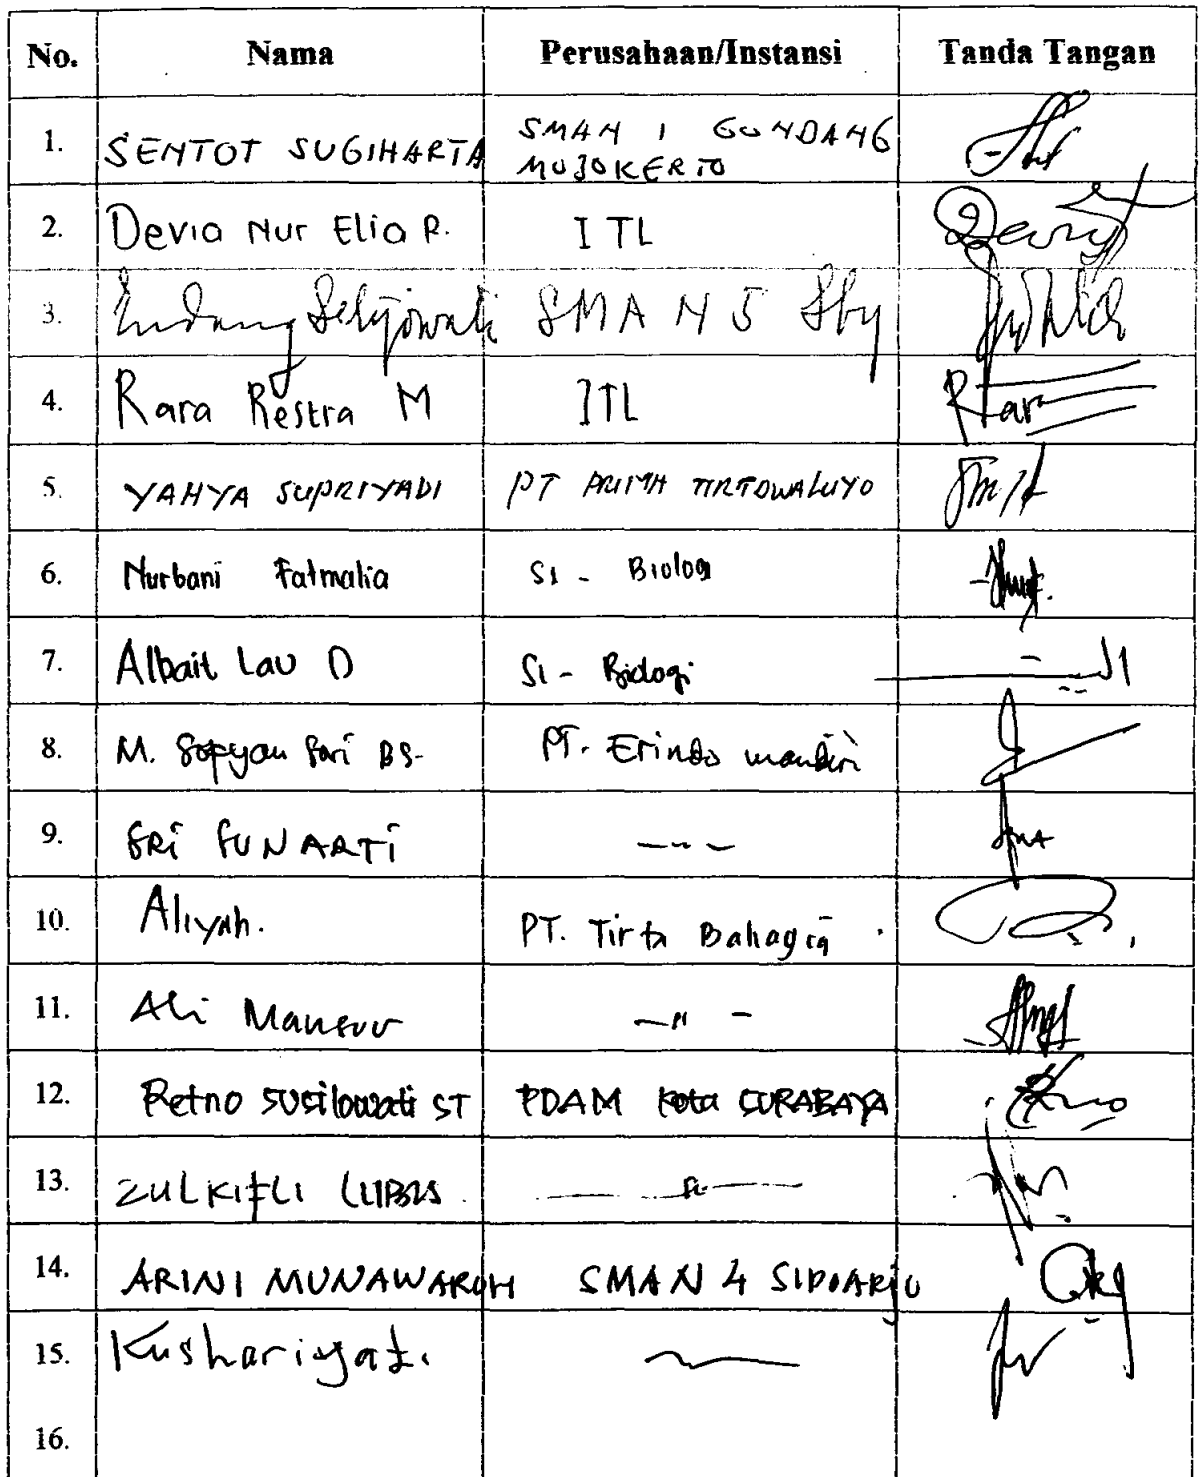 No. Nama Perusahaan/Instansi Tanda Tangan
1. SENTOT SUGIHARTA SMAN 1 GONDANG
MOJOKERTO
2. Devia Nur Elia P. ITL
3. Endang Setijowati SMA N 5 Sby
4. Rara Restra M ITL
5. YAHYA SUPRIYADI PT PRIMA TIRTOWALUYO
6. Nurbani Fatmalia S1 - Biologi
7. Albait Lau D S1 - Biologi
8. M. Sopyan Sari BS. PT. Erindo mandiri
9. SRI SUNARTI — " —
10. Aliyah. PT. Tirta Bahagia
11. Ali Mansur — " —
12. Retno SUSilowati ST PDAM Kota SURABAYA
13. ZULKIFLI LUBIS
14. ARINI MUNAWAROH SMAN 4 SIDOARJO
15. Kushariyati.
16.